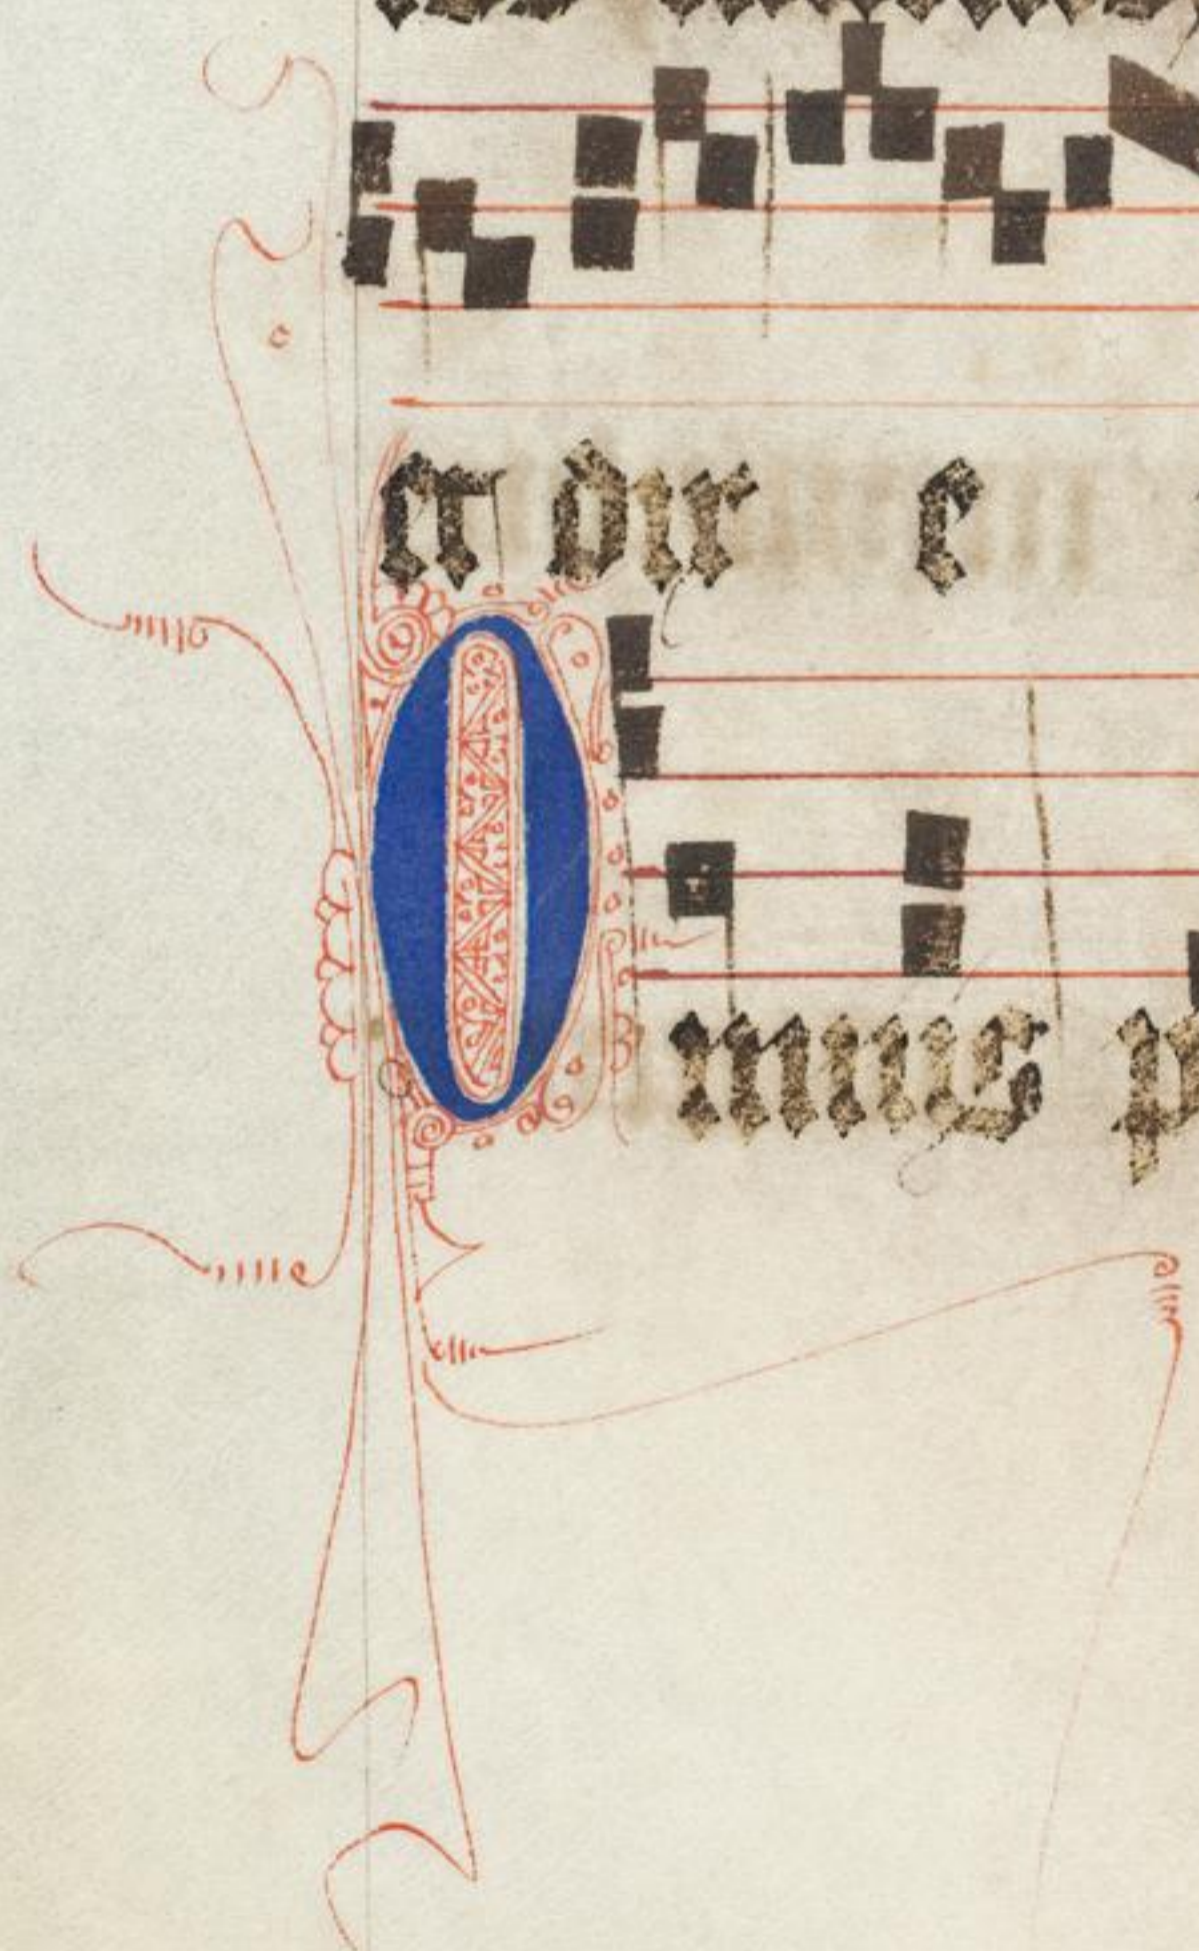 et dix e
Omnis p